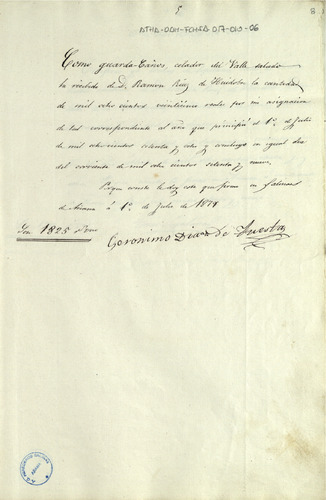 5
8
ATHA-DAH-FCHSA-017-010-06
Como guarda Caños celador del Valle salado
he recibido de D. Ramon Ruiz de Huidobro la cantidad
de mil ocho cientos veinticinco reales por mi asignacion
de tal correspondiente al año que principió el 1º de Julio
de mil ocho cientos setenta y ocho y concluyo en igual dia
del corriente de mil ocho cientos setenta y nueve.
Y para que conste le doy este que firmo en Salinas
de Añana á 1º de Julio de 1879
Son 1825 r.
Geronimo Diaz de Tuesta